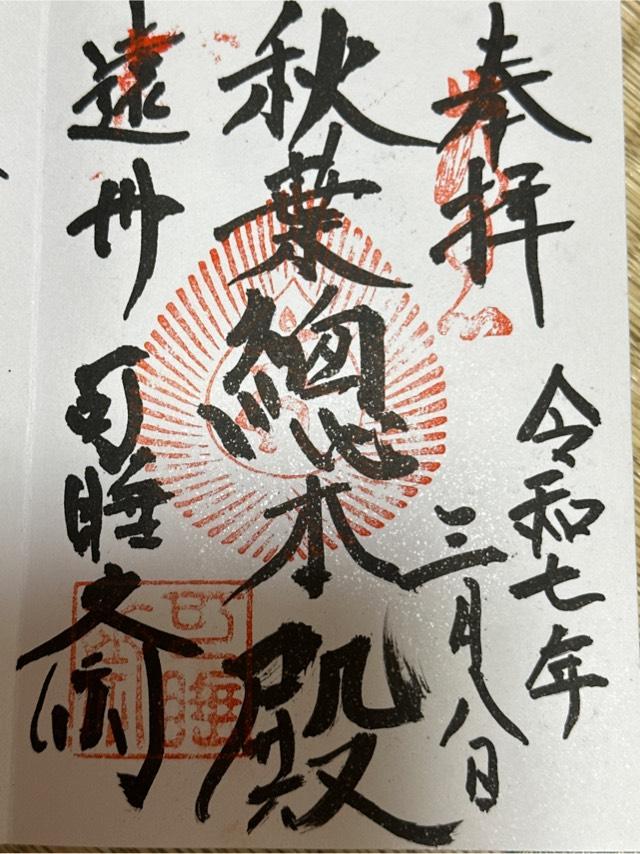 奉拝
令和七年
三月八日
秋葉總本殿
遠州
可睡斎